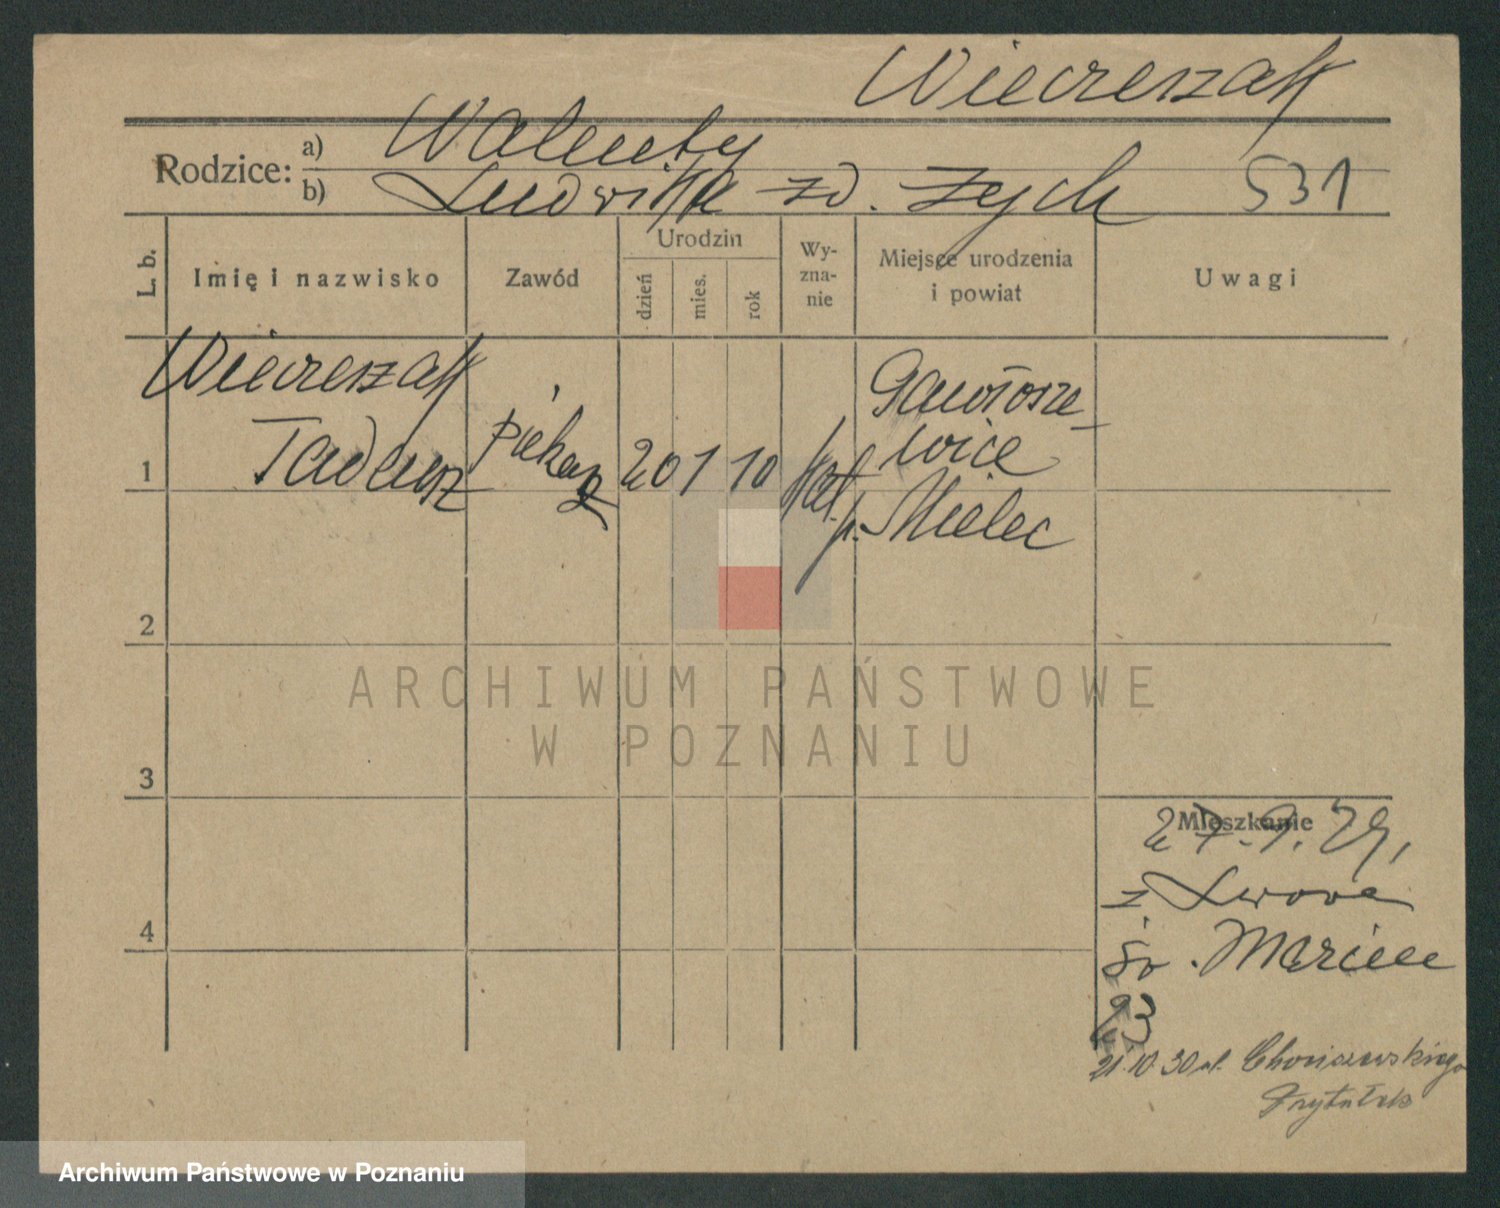 Wieczreszak
Rodzice:
a) Walenty
b) Ludwika zd. Zych 531
L. b.
Imię i nazwisko
Zawód
Urodzin
dzień
mies.
rok
Wy-
zna-
nie
Miejsce urodzenia
i powiat
Uwagi
1
Tadeusz
piekarz
20 1 10
kat.
wice
p. Mielec
2
3
4
Mieszkanie
27.9.29,
z Lwowa
św.
23
21.10.30 ul.
ARCHIWUM PAŃSTWOWE
W POZNANIU
Archiwum Państwowe w Poznaniu